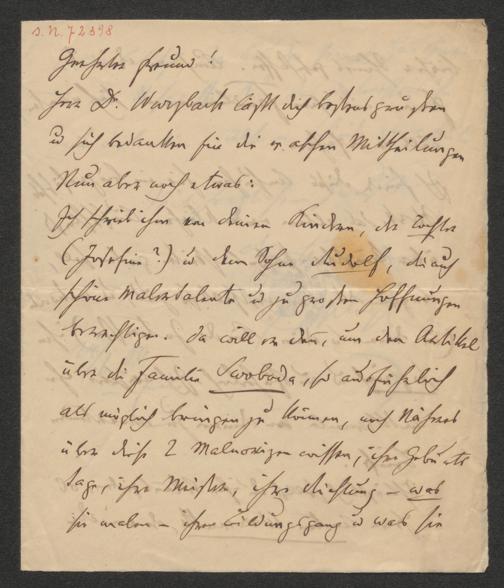 I. N. 72398
Geehrter Freund!
Herr Dr. Wurzbach läßt dich bestens grüßen
u sich bedanken für die raschen Mittheilungen
Nun aber noch etwas:
Ich schrieb ihm von deinen Kindern, der Tochter
(Josefine?) u dem Sohne Rudolf, die auch
schöne Malertalente u zu großen Hoffnungen
berechtigen. Da will er denn, um den Artikel
über die Familie Swoboda, so ausführlich
als möglich bringen zu können, noch Näheres
über diese 2 Malnovizen wissen, ihre Geburts
tage, ihre Meister, ihre Richtung – was
sie malen – ihren Bildungsgang u was sie